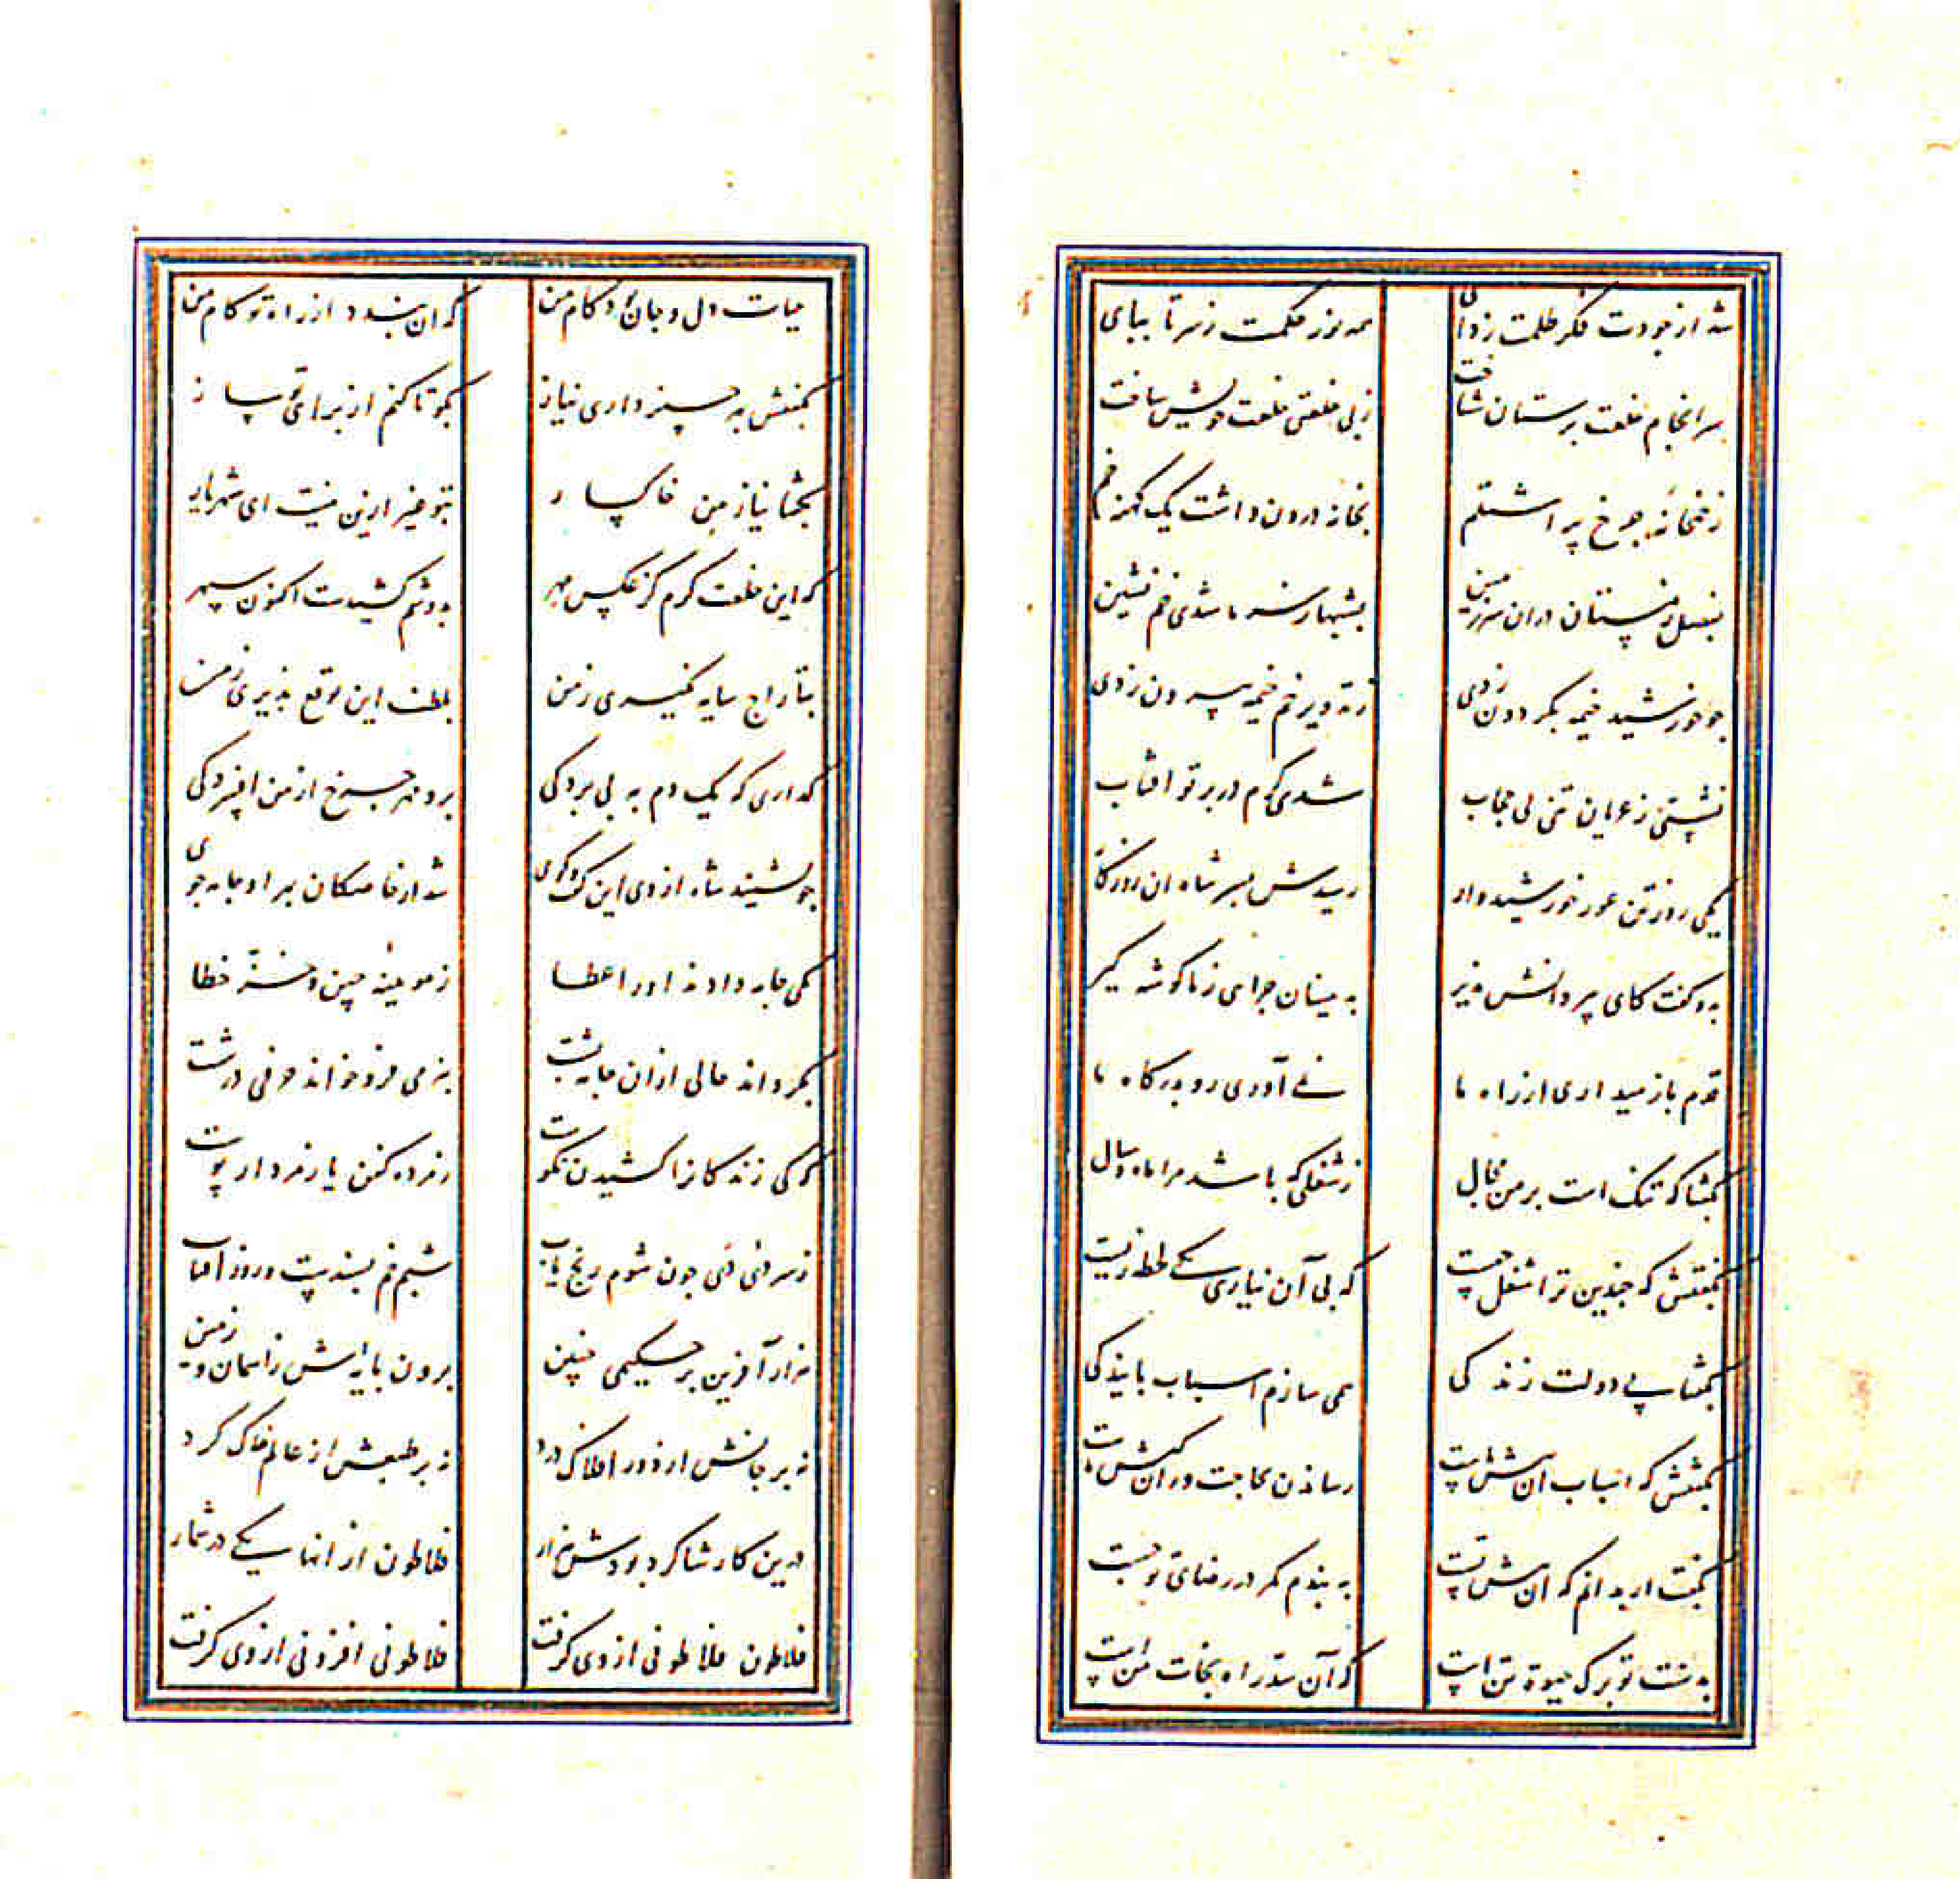 شد از جودت فکر ظلمت زدای همه نور حکمت ز سر تا بپای
سرانجام خلعت پرستان شناخت ز بی خلعتی خلعت خویش ساخت
ز خمخانه چرخ پر اشتلم بخانه درون داشت یک کهنه خم
بفصل زمستان دران سرزمین بشبهای سرما شدی خم نشین
چو خورشید خیمه بگردون زدی ز ته دیر خم خیمه بیرون زدی
نشستی ز عریان تنی بی حجاب شدی گرم در پرتو افتاب
یکی روز تن عور خورشیدوار رسیدش بسر شاه ان روزگار
بدو گفت کای پیر دانش پذیر بدینسان چرایی ز ما گوشه گیر
قدم باز میداری از راه ما نمی آوری رو بدرگاه ما
بگفتا که تنگ است بر من مجال ز شغلی که باشد مرا ماه و سال
بگفتش که چندین ترا شغل چیست که بی آن نیاری یکی لحظه زیست
بگفتا پی دولت زندگی همی سازم اسباب پایندگی
بگفتش که اسباب ان پیش ماست رساندن بحاجت وران کیش ماست
بگفت ار بدانم که ان پیش تست به بندم کمر در رضای تو چست
بدست تو برگ حیوة تن است که آن سد راه نجات من است
حیات دل و جان کام من که ان بندد از راه تو کام من
بگفتش به چیز داری نیاز بگو تا کنم از برای تو ساز
بگفتا نیاز من خاکسار بتو غیر ازین نیست ای شهریار
که این خلعت گرم کز عکس مهر بدوشم کشیدست اکنون سپهر
بتاراج سایه نگیری ز من بلطف این توقع پذیری ز من
گذاری که یک دم به بی پردگی برد مهر چرخ از من افسردگی
چو بشنید شاه از وی این گفت و گوی شد از خاصگان بهر او جامه جوی
یکی جامه دادند او را عطا ز مویینه چین و خز خطا
بگرداند حالی ازان جامه پشت بنرمی فرو خواند حرفی درشت
که کی زندگانرا کشیدن نکوست ز مرده کفن یا ز مردار پوست
ز سرمای دی چون شوم رنج یاب شبم خم بسندست و روز افتاب
هزار آفرین بر حکیمی چنین برون پایه اش ز اسمان و زمین
نه بر جانش از دور افلاک درد نه بر طبعش از عالم خاک گرد
درین کار شاگرد بودش هزار فلاطون از انها یکی در شمار
فلاطون فلاطونی از وی گرفت فلاطونی افزونی از وی گرفت